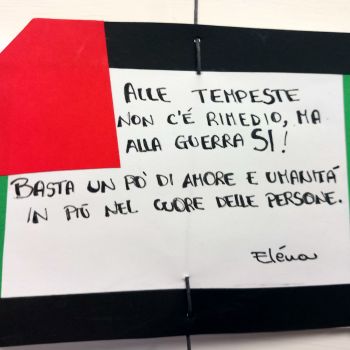 ALLE TEMPESTE
NON C'É RIMEDIO, MA
ALLA GUERRA SI!
BASTA UN PO' DI AMORE E UMANITÁ
IN PIÚ NEL CUORE DELLE PERSONE.
Eléna